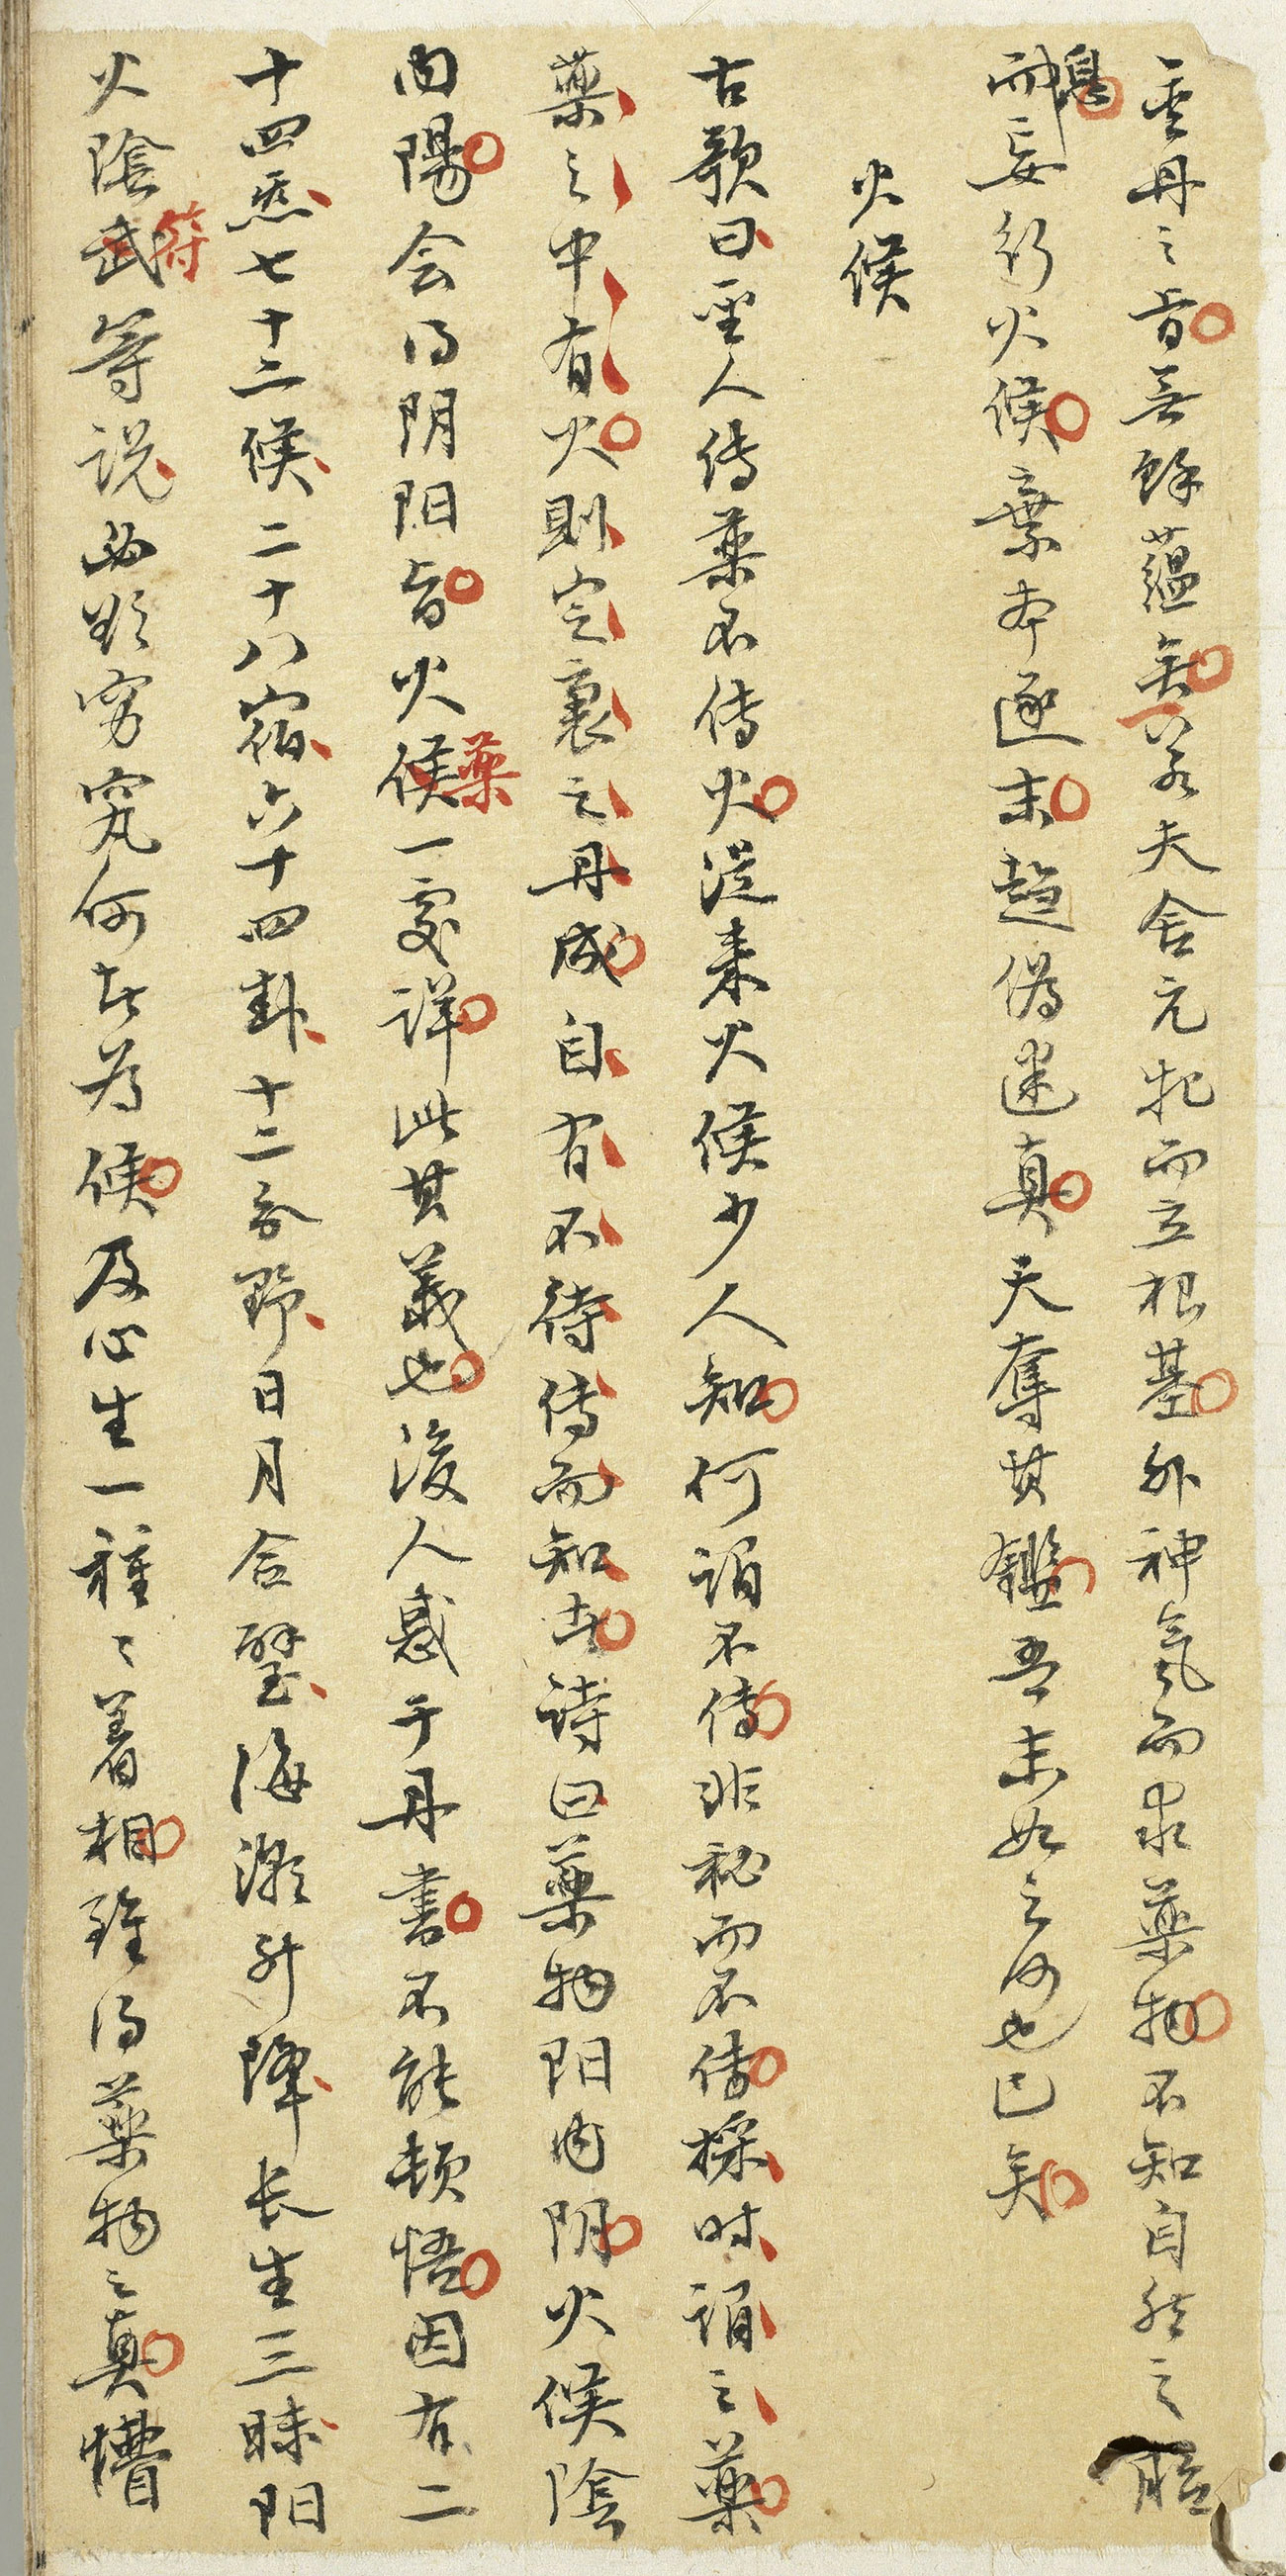 金丹之旨无餘蘊矣若夫舍元牝而立根基外神氣而求藥物不知自然之胎
息而妄行火候棄本逐末趨偽迷真天奪其鑑吾末如之何也已矣
火候
古歌曰聖人传薬不传火從来火候少人知何謂不传非秘而不传採时謂之薬
藥之中有火則定裏之丹成自有不待传而知者诗曰藥物阳内阴火候陰
内陽会得阴阳旨火候藥一處詳此其義也後人惑于丹書不能頓悟因有二
十四炁七十二候二十八宿六十四卦十二分野日月合璧海潮升降长生三昧阳
火陰武符等说必欲穷究何者为候及心生一種々着相雖得藥物之真懵